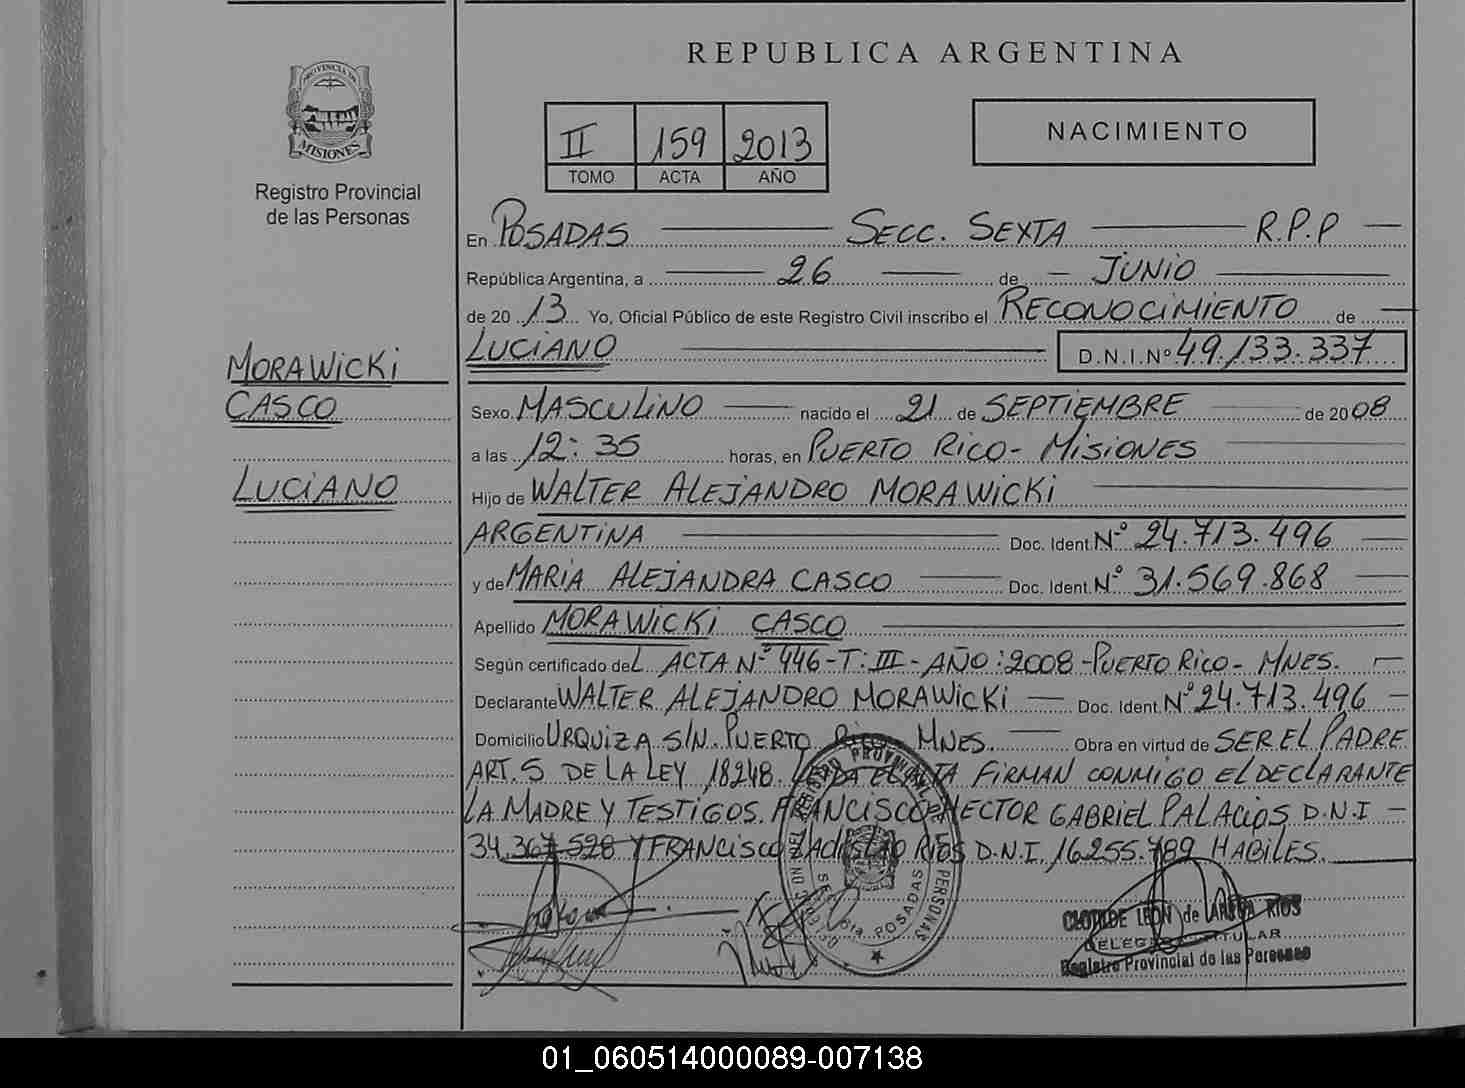 REPUBLICA ARGENTINA
PROVINCIA DE
MISIONES
Registro Provincial
de las Personas
II 159 2013
TOMO ACTA AÑO
NACIMIENTO
En POSADAS SECC. SEXTA R.P.P
República Argentina, a 26 de JUNIO
de 20 13 Yo, Oficial Público de este Registro Civil inscribo el RECONOCIMIENTO de
LUCIANO D.N.I.Nº 49.133.337
MORAWICKI
CASCO
LUCIANO
Sexo MASCULINO nacido el 21 de SEPTIEMBRE de 2008
a las 12:35 horas, en PUERTO RICO - MISIONES
Hijo de WALTER ALEJANDRO MORAWICKI
ARGENTINA Doc. Ident. Nº 24.713.496
y de MARIA ALEJANDRA CASCO Doc. Ident. Nº 31.569.868
Apellido MORAWICKI CASCO
Según certificado deL ACTA Nº 446-T: III - AÑO: 2008 - PUERTO RICO - MNES.
Declarante WALTER ALEJANDRO MORAWICKI Doc. Ident. Nº 24.713.496
Domicilio URQUIZA S/N. PUERTO RICO MNES. Obra en virtud de SER EL PADRE
ART. 5 DE LA LEY 18248. LEIDA EL ACTA FIRMAN CONMIGO EL DECLARANTE
LA MADRE Y TESTIGOS. FRANCISCO HECTOR GABRIEL PALACIOS D.N.I
34.367.528 Y FRANCISCO LADISLAO RIOS D.N.I. 16255.789 HABILES.
REGISTRO PROVINCIAL DE LAS PERSONAS
POSADAS
CLOTILDE LEON de RIOS
DELEGADA TITULAR
Registro Provincial de las Personas
01_060514000089-007138